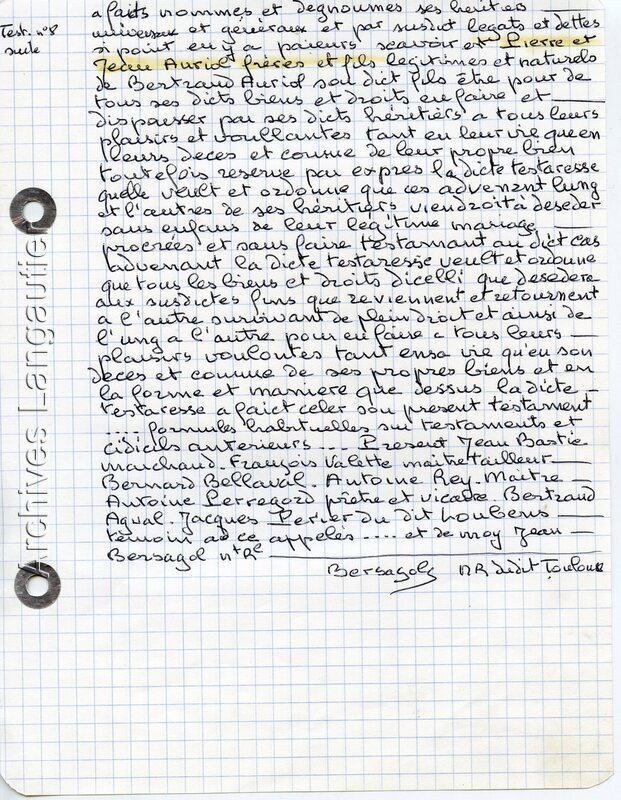 Test. n°8
suite
a faits nommés et degnoumes ses herities
universaux et généraux et par susdit legats et dettes
si point en y a paieurs scavoir est Pierre et
Jean Auriol frères et fils legitimes et naturels
de Bertrand Auriol son dict fils être pour de
tous ses dicts biens et droits en faire et
dispauser par ses dicts héritiers a tous leurs
plaisirs et voullantes tant en leur vie que en
leurs deces et comme de leur propre bien
toutefois reserve par expres la dicte testaresse
quelle veult et ordonne que ces advenant lung
et l'autres de ses héritiers viendroit a deseder
sans enfans de leur legitime mariage
procrées et sans faire testamant au dict cas
advenant la dicte testaresse veult et ordonne
que tous les biens et droits dicelli que desedera
aux susdictes fins que reviennent et retournent
a l'autre survivant de plein droit et ainsi de
l'ung a l'autre pour en faire a tous leurs
plaisirs voulontes tant en sa vie qu'en son
deces et comme de ses propres biens et en
la forme et maniere que dessus la dicte
testaresse a faict celer son present testament
.... formules habituelles sur testaments et
cidicils anterieurs .... Present Jean Bastie
marchand. François Valette maitre tailleur
Bernard Bellaval. Antoine Rey. Maitre
Antoine Perregord prêtre et vicaire. Bertrand
Agual. Jacques Perier du dit Loubens
temoin ad ce appelés .... et de moy Jean
Bersagol ntRe
Bersagols NR dedit Toulouse
Archives Langautier